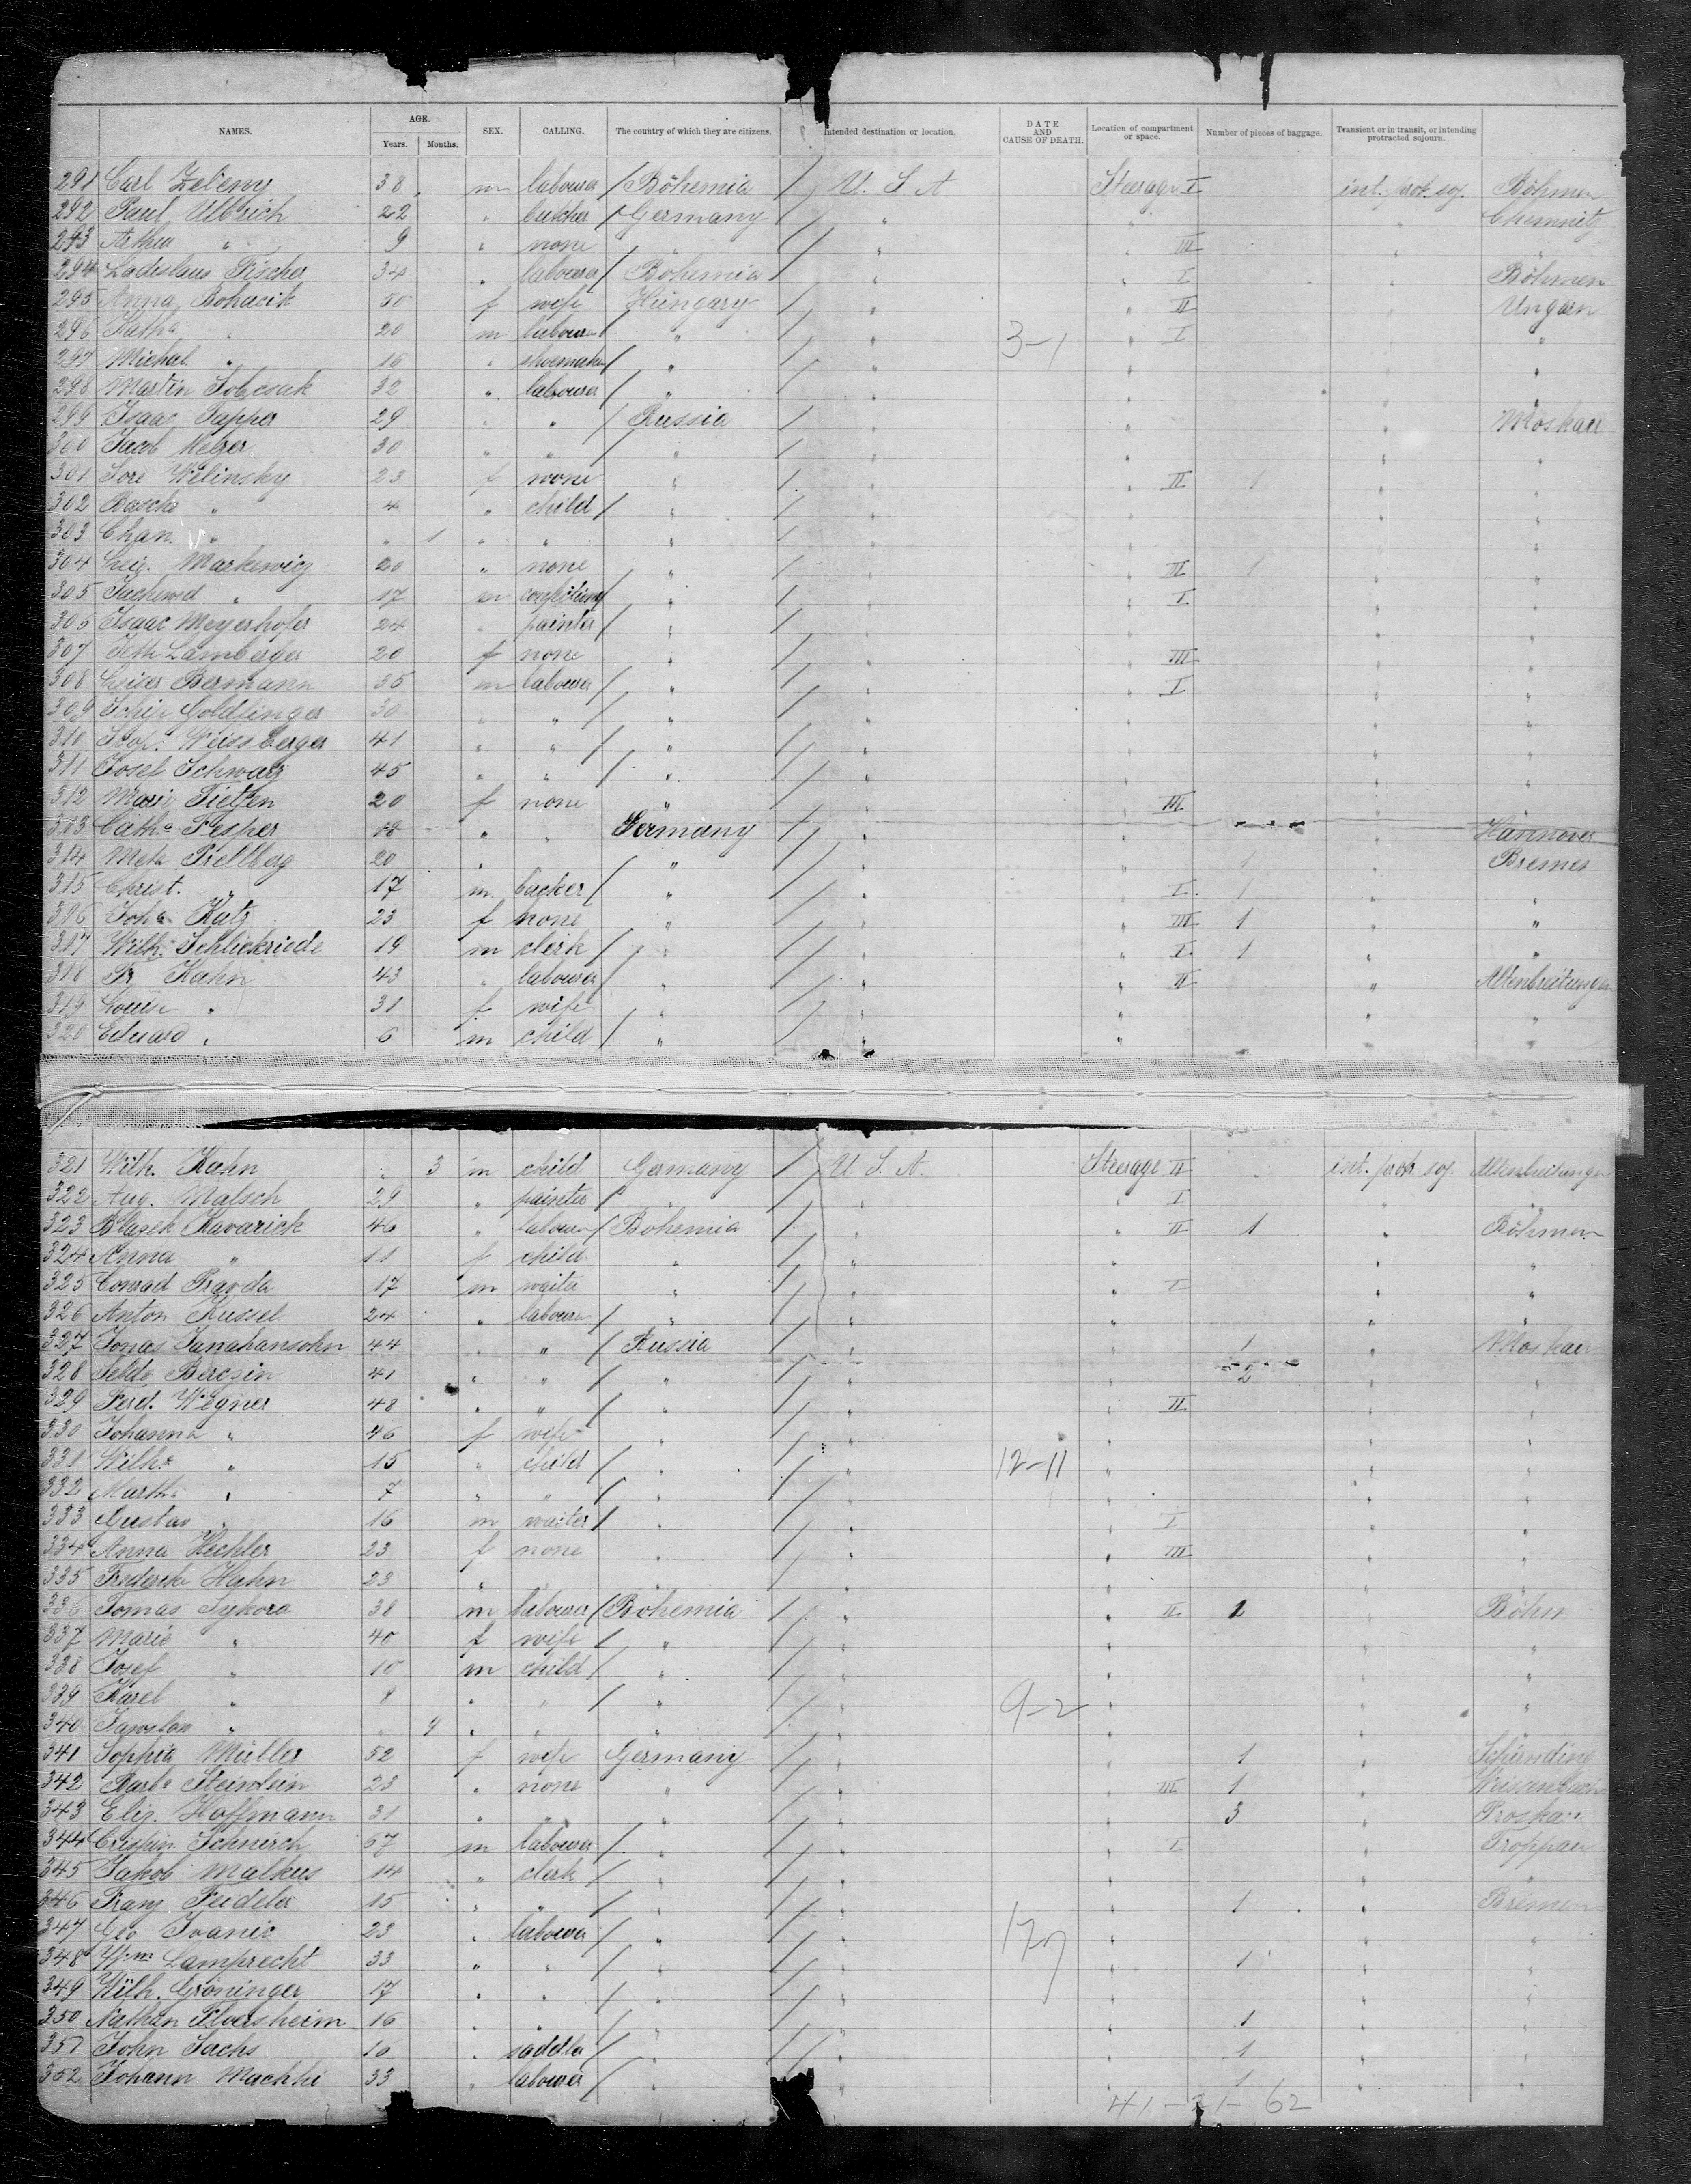 NAMES. AGE. Years. Months. SEX. CALLING. The country of which they are citizens. Intended destination or location. DATE AND CAUSE OF DEATH. Location of compartment or space. Number of pieces of baggage. Transient or in transit, or intending protracted sojourn.
291 Carl Zeleny 38 m labourer / Böhemia / U. S. A Steerage I int. prot. soj. Böhmen
292 Paul Ulbrich 22 " butcher / Germany / " " " Chemnitz
293 Arthur " 9 " none " / " " III " "
294 Ladislaus Fischer 34 " labourer / Bohemia / " " I " Böhmen
295 Anna Bohacik 50 f wife Hungary / " " II " Ungarn
296 Kath " 20 m labourer / " / " 3-1 " I " "
297 Michal " 16 " shoemaker / " / " " " "
298 Martin 32 " labourer / " / " " " "
299 Isaac Tapper 29 " " / Russia / " " " Moskau
300 Jacob 30 " " / " / " " " "
301 Sore Welinsky 23 f none " / " " II 1 " "
302 4 " child / " / " " " "
303 Chan " " 1 " " " / " " " "
304 Markewicz 20 " none " / " " III 1 " "
305 " 17 m / " / " " I " "
306 Isaac Meyerhofer 24 " painter / " / " " " "
307 Lamberger 20 f none " / " " III " "
308 Bermann 35 m labourer / " / " " I " "
309 Goldfinger 30 " " / " / " " " "
310 Weissberger 41 " " / " / " " " "
311 Josef Schwarz 45 " " / " / " " " "
312 Marie Tietjen 20 f none " / " " III " "
313 Cath.e Fesper 18 " " Germany / " " " Hannover
314 Meta Prellberg 20 " " " / " " 1 " Bremen
315 Christ. " 17 m backer / " / " " I 1 " "
306 Joh.a Katz 23 f none " / " " III 1 " "
307 Wilh. Schliekriede 19 m clerk / " / " " I 1 " "
318 Fr Kahn 43 " labourer / " / " " II " Altenbreitungen
319 Louise " 31 f wife " / " " " "
320 Eduard " 6 m child / " / " " " "
321 Wilh. Kahn " 3 m child Germany / U. S. A. Steerage II int. prot. soj. Altenbreitungen
322 Aug. Malsch 29 " painter / " / " " I " "
323 Blazek Kavarick 46 " labourer / Bohemia / " " II 1 " Böhmen
324 Anna " 11 f child " / " " " "
325 Conrad Pravda 17 m waiter " / " " I " "
326 Anton Kussel 24 " labourer / " / " " " "
327 Jonas Janahansohn 44 " " / Russia / " " 1 " Moskau
328 Selde Berczin 41 " " / " / " " 2 " "
329 Ferd. Wegner 48 " " / " / " " II " "
330 Johanna " 46 f wife " / " " " "
331 Wilh.e " 15 " child / " / " 12-11 " " "
332 Martha " 7 " " / " / " " " "
333 Gustav " 16 m waiter / " / " " I " "
334 Anna Hechler 23 f none " / " " III " "
335 Frederike Hahn 23 " " " / " " " "
336 Tomas Sykora 38 m labourer / Bohemia / " " II 1 " Böhm
337 Marie " 40 f wife / " / " " " "
338 Josef " 10 m child / " / " " " "
339 Karel " 8 " " / " / " 9-2 " " "
340 Jaroslow " " 9 " " " / " " " "
341 Sophia Müller 52 f wife Germany / " " 1 " Schirnding
342 Barb.a Steinlein 23 " none " / " " III 1 "
343 Eliz. Hoffmann 31 " " " / " " 3 " Proskau
344 Crispin Schnirch 67 m labourer / " / " " I " Troppau
345 Jakob Malkus 14 " clerk / " / " " " "
346 Franz Feideler 15 " " / " / " " 1 " Bremen
347 Geo Ivanic 23 " labourer / " / " 17-7 " " "
348 Wm Lamprecht 33 " " / " / " " 1 " "
349 Wilh. Gröninger 17 " " / " / " " " "
350 Nathan Floersheim 16 " " / " / " " 1 " "
351 John Sachs 16 " saddler / " / " " 1 " "
352 Johann Machhi 33 " labourer / " / " " 1 " "
41-21-62